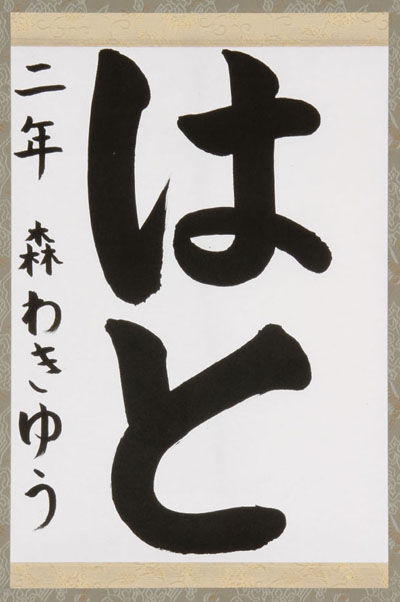 はと
二年 森わきゆう